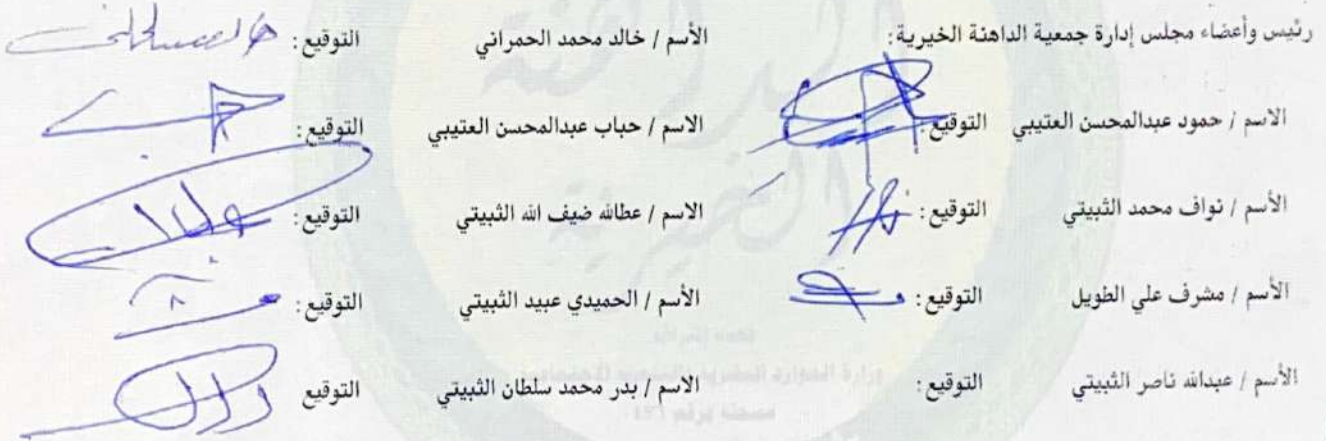 رئيس وأعضاء مجلس إدارة جمعية الداهنة الخيرية: الأسم / خالد محمد الحمراني التوقيع:
الاسم / حمود عبدالمحسن العتيبي التوقيع: الاسم / حباب عبدالمحسن العتيبي التوقيع:
الأسم / نواف محمد الثبيتي التوقيع: الاسم / عطالله ضيف الله الثبيتي التوقيع:
الأسم / مشرف علي الطويل التوقيع: الأسم / الحميدي عبيد الثبيتي التوقيع:
الأسم / عبدالله ناصر الثبيتي التوقيع: الاسم / بدر محمد سلطان الثبيتي التوقيع
الداهنة
الخيرية